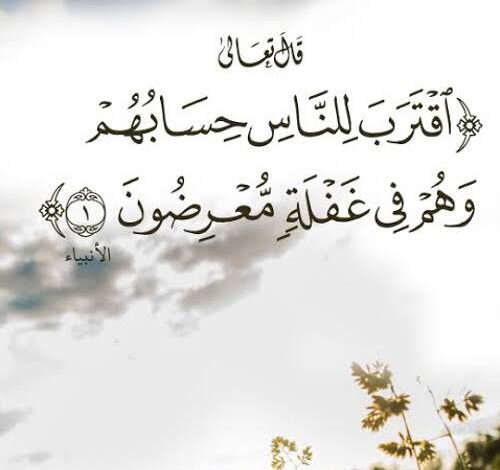 قَالَ تَعَالَىٰ
﴿ٱقۡتَرَبَ لِلنَّاسِ حِسَابُهُمۡ
وَهُمۡ فِي غَفۡلَةٖ مُّعۡرِضُونَ ١﴾
الأنبياء